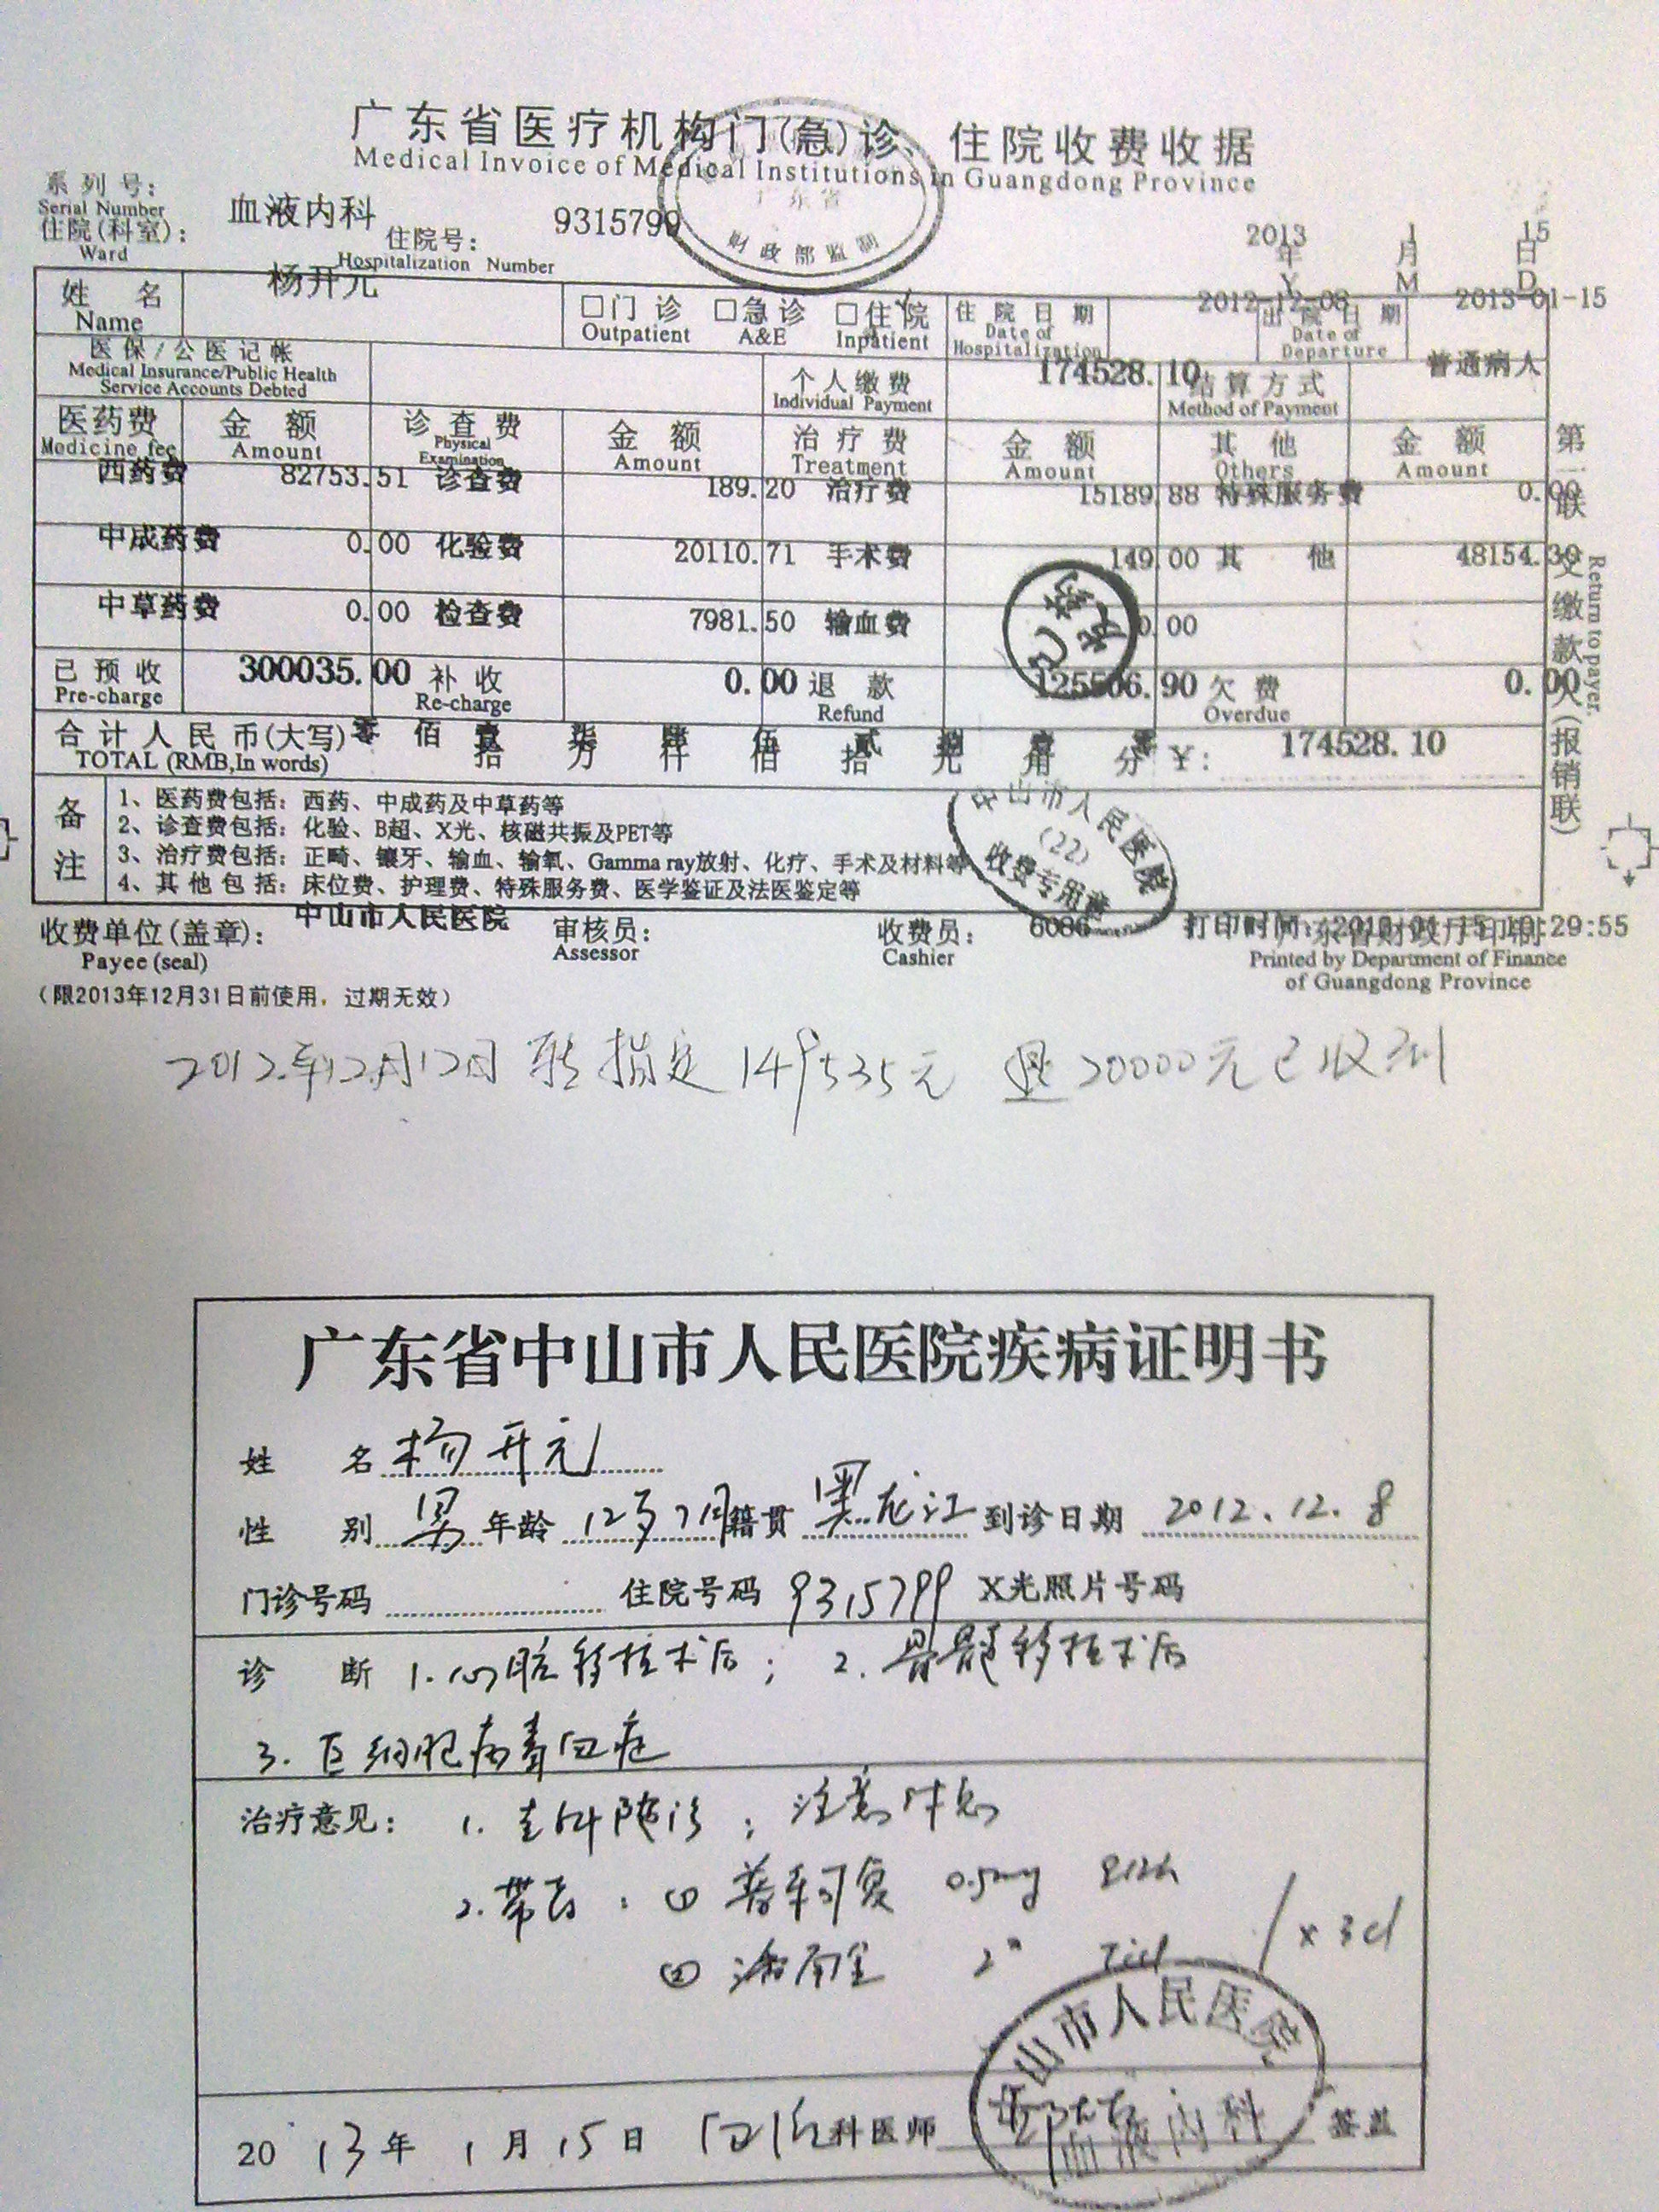 广东省医疗机构门(急)诊、住院收费收据
Medical Invoice of Medical Institutions in Guangdong Province
广东省
财政部监制
系列号:
Serial Number
住院(科室): 血液内科 住院号: 9315799
Ward Hospitalization Number
2013年 1月 15日
Y M D
姓名 杨开元 □门诊 □急诊 □住院 √ 住院日期 2012-12-08 出院日期 2013-01-15
Name Outpatient A&E Inpatient Date of Hospitalization Date of Departure
医保/公医记帐 个人缴费 174528.10 结算方式 普通病人
Medical Insurance/Public Health Service Accounts Debted Individual Payment Method of Payment
医药费 金额 诊查费 金额 治疗费 金额 其他 金额
Medicine fee Amount Physical Examination Amount Treatment Amount Others Amount
西药费 82753.51 诊查费 189.20 治疗费 15189.88 特殊服务费 0.00
中成药费 0.00 化验费 20110.71 手术费 149.00 其他 48154.30
中草药费 0.00 检查费 7981.50 输血费 0.00
已预收 300035.00 补收 0.00 退款 125506.90 欠费 0.00
Pre-charge Re-charge Refund Overdue
合计人民币(大写) 零佰壹拾柒万肆仟伍佰贰拾捌元壹角零分 ¥: 174528.10
TOTAL (RMB,In words)
备注
1、医药费包括: 西药、中成药及中草药等
2、诊查费包括: 化验、B超、X光、核磁共振及PET等
3、治疗费包括: 正畸、镶牙、输血、输氧、Gamma ray放射、化疗、手术及材料等
4、其他包括: 床位费、护理费、特殊服务费、医学鉴证及法医鉴定等
中山市人民医院
(22)
收费专用章
第一联 交缴款人(报销联)
Return to payer.
收费单位(盖章): 中山市人民医院 审核员: 收费员: 6086 打印时间: 2013-01-15 10:29:55
Payee (seal) Assessor Cashier
广东省财政厅印制
Printed by Department of Finance
of Guangdong Province
(限2013年12月31日前使用, 过期无效)
2012年12月12日 转指定149535元 退20000元已收到
广东省中山市人民医院疾病证明书
姓名 杨开元
性别 男 年龄 12岁7月 籍贯 黑龙江 到诊日期 2012.12.8
门诊号码 住院号码 9315799 X光照片号码
诊断 1.心脏移植术后; 2.骨髓移植术后
3.巨细胞病毒血症
治疗意见: 1. 专科随诊; 注意休息
2.带药: ① 普乐可复 0.5mg q12h
② 2# Tid × 3d
中山市人民医院
血液内科
2013年1月15日 血液科医师 签盖